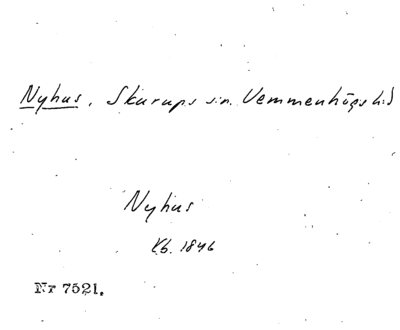 Nyhus, Skurups sn. Vemmenhögs hd
Nyhus
Kb. 1846
Nr 7521.